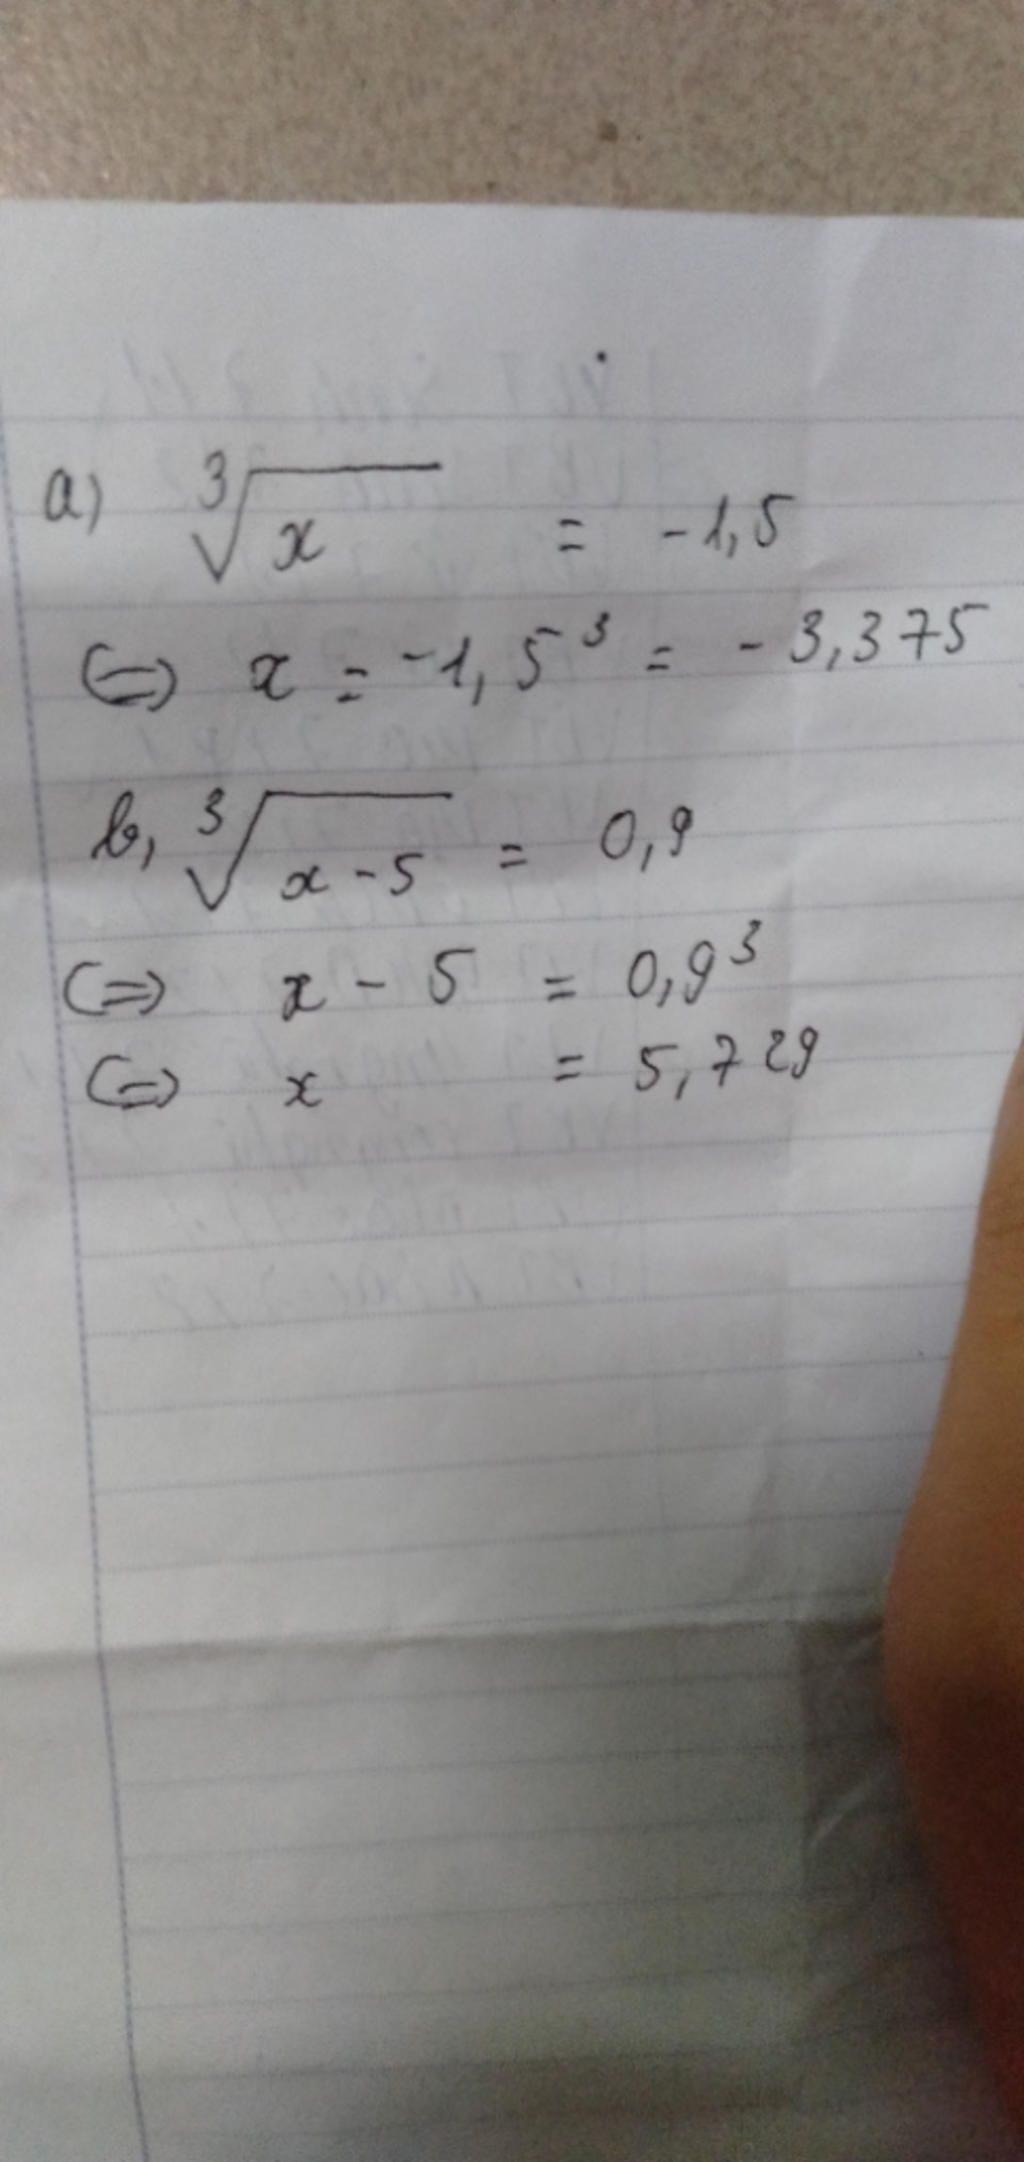 a) ∛x = -1,5
(=) x = -1,5³ = - 3,375
b, ∛x-5 = 0,9
(=) x - 5 = 0,9³
(=) x = 5,729